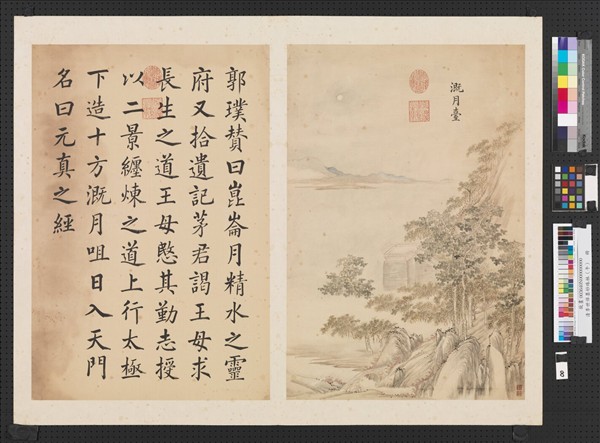 溉月臺
郭璞贊曰崑崙月精水之靈
府又拾遺記茅君謁王母求
長生之道王母愍其勤志授
以二景纏煉之道上行太極
下造十方溉月咀日入天門
名曰元真之經
8